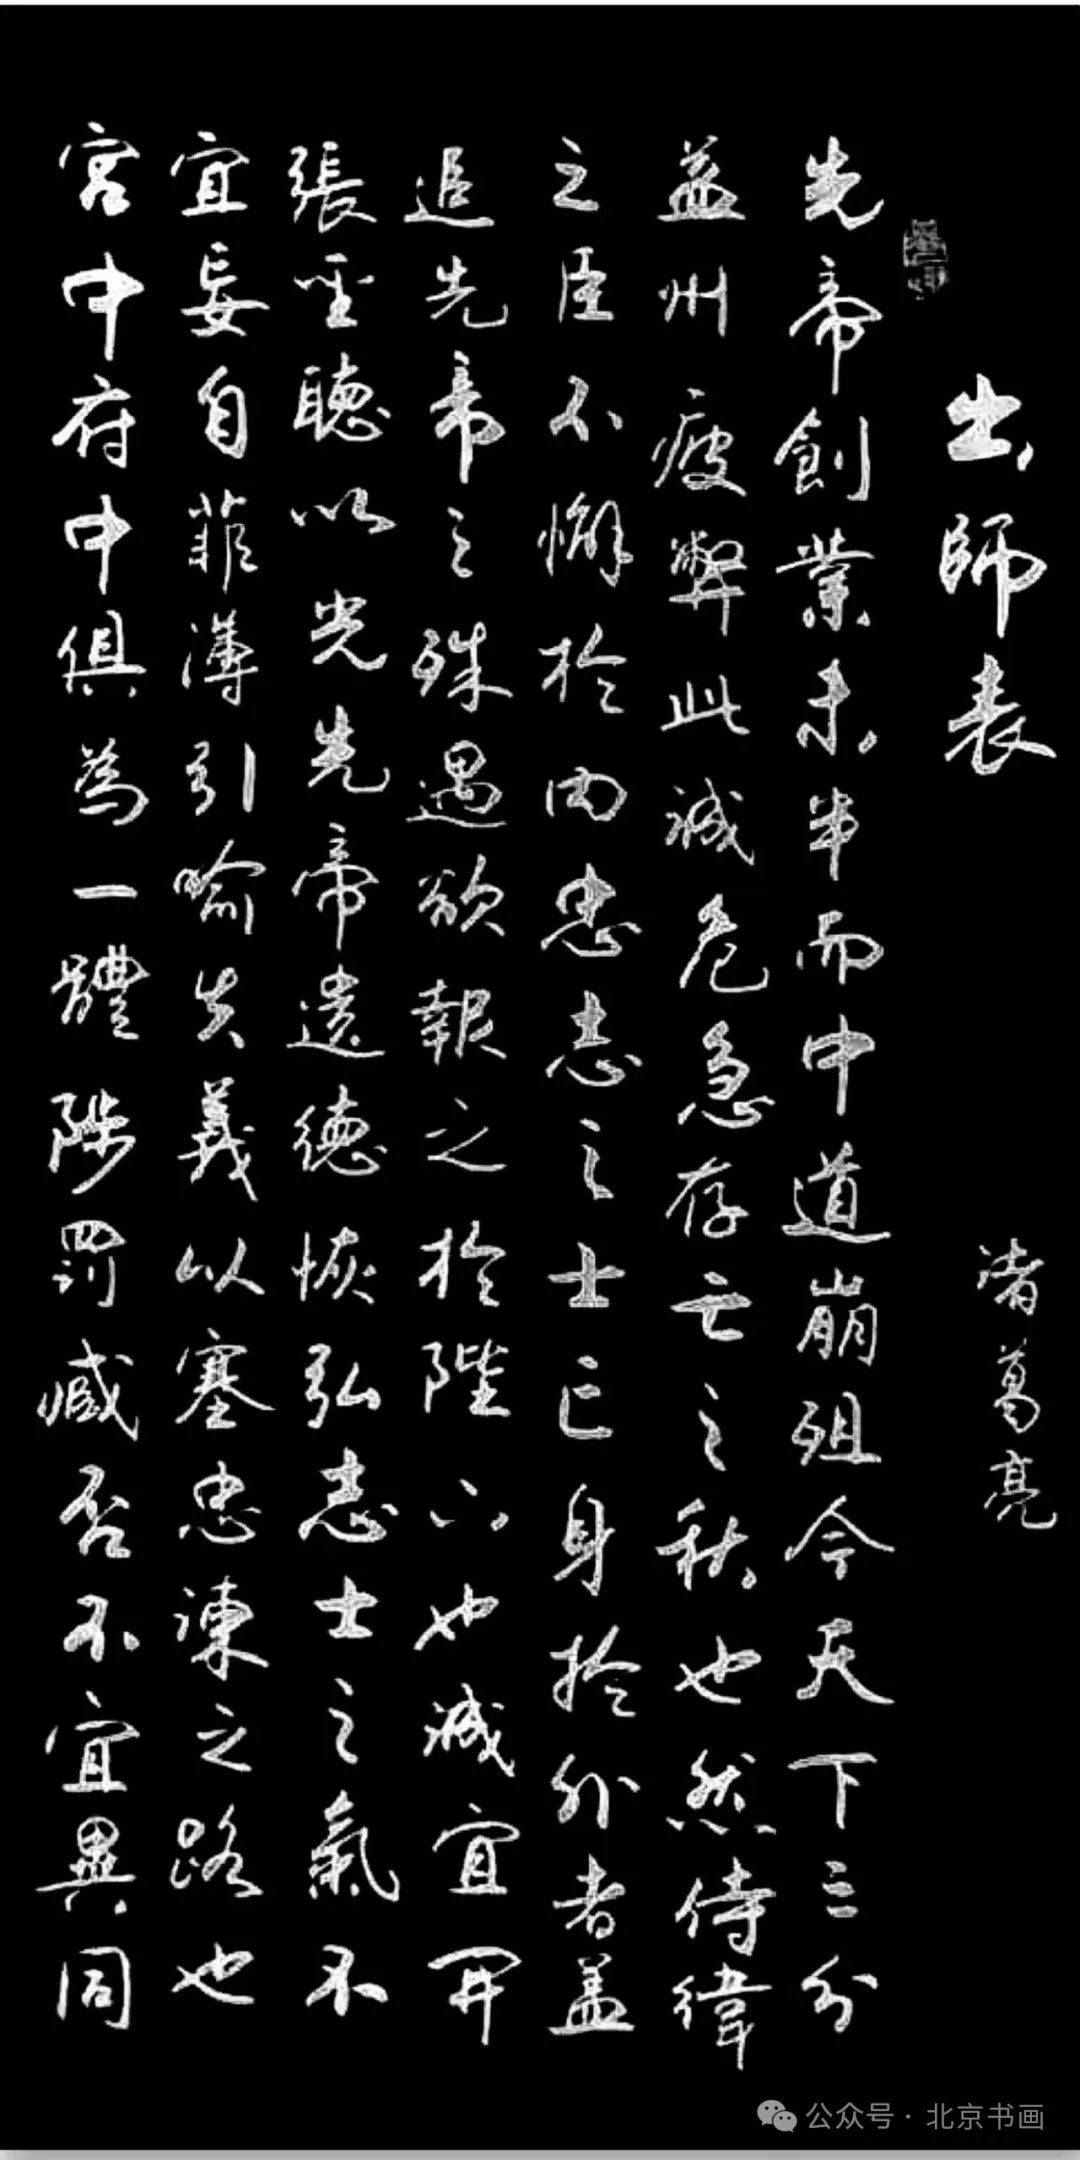 出師表 諸葛亮
先帝創業未半而中道崩殂今天下三分
益州疲弊此誠危急存亡之秋也然侍衛
之臣不懈於内忠志之士亡身於外者蓋
追先帝之殊遇欲報之於陛下也誠宜開
張聖聽以光先帝遺德恢弘志士之氣不
宜妄自菲薄引喻失義以塞忠諫之路也
宮中府中俱為一體陟罰臧否不宜異同
公众号 · 北京书画